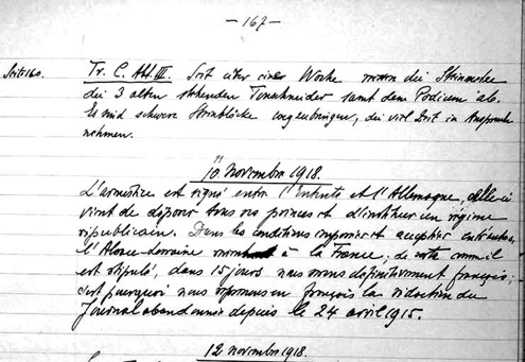 — 167 —
Seite 160. Tr. C. Abt. III. Seit über einer Woche die Steinmetze
die 3 alten stehenden samt dem Podium ab.
Es sind schwere Steinblöcke wegzubringen, die viel Zeit in Anspruch
nehmen.
11
10 Novembre 1918.
L'armistice est signé entre l'Entente et l'Allemagne, celle-ci
vient de déposer tous ses princes et d'instituer un régime
républicain. Dans les conditions imposées et acceptées
l'Alsace-Lorraine à la France; de sorte comme il
est stipulé, dans 15 jours nous serons définitivement français;
c'est pourquoi nous reprenons en français la rédaction du
Journal abandonnée depuis le 24 avril 1915.
12 novembre 1918.